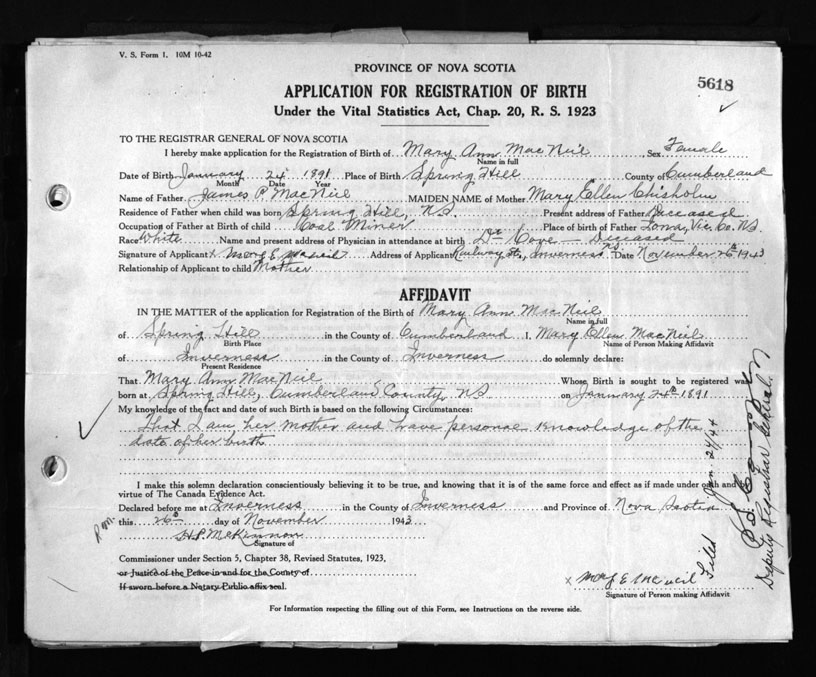 V. S. Form 1. 10M 10-42
PROVINCE OF NOVA SCOTIA
5618
APPLICATION FOR REGISTRATION OF BIRTH
Under the Vital Statistics Act, Chap. 20, R. S. 1923
TO THE REGISTRAR GENERAL OF NOVA SCOTIA
I hereby make application for the Registration of Birth of Mary Ann MacNeil, Sex Female
Name in full
Date of Birth January 24 1891 Place of Birth Spring Hill County of Cumberland
Month Date Year
Name of Father James P. MacNeil MAIDEN NAME of Mother Mary Ellen Chisholm
Residence of Father when child was born Spring Hill, N.S. Present address of Father Deceased
Occupation of Father at Birth of child Coal Miner Place of birth of Father Iona, Vic. Co. N.S.
Race White Name and present address of Physician in attendance at birth Dr Cove - Deceased
Signature of Applicant x Mary E Macneil Address of Applicant Railway St., Inverness N.S. Date November 26th 1943
Relationship of Applicant to child Mother
AFFIDAVIT
IN THE MATTER of the application for Registration of the Birth of Mary Ann MacNeil
Name in full
of Spring Hill in the County of Cumberland I, Mary Ellen MacNeil
Birth Place Name of Person Making Affidavit
of Inverness in the County of Inverness do solemnly declare:
Present Residence
That Mary Ann MacNeil Whose Birth is sought to be registered was
born at Spring Hill, Cumberland County, N.S. on January 24th 1891
My knowledge of the fact and date of such Birth is based on the following Circumstances:
That I am her mother and have personal knowledge of the
date of her birth
I make this solemn declaration conscientiously believing it to be true, and knowing that it is of the same force and effect as if made under oath and by
virtue of The Canada Evidence Act.
Declared before me at Inverness in the County of Inverness and Province of Nova Scotia
this 26th day of November 1943
H.P. McKinnon
Signature of
Commissioner under Section 5, Chapter 38, Revised Statutes, 1923,
or Justice of the Peace in and for the County of
If sworn before a Notary Public affix seal.
x Mary E Macneil
Signature of Person making Affidavit
For Information respecting the filling out of this Form, see Instructions on the reverse side.
Filed Jan. 24/44
Deputy Registrar General